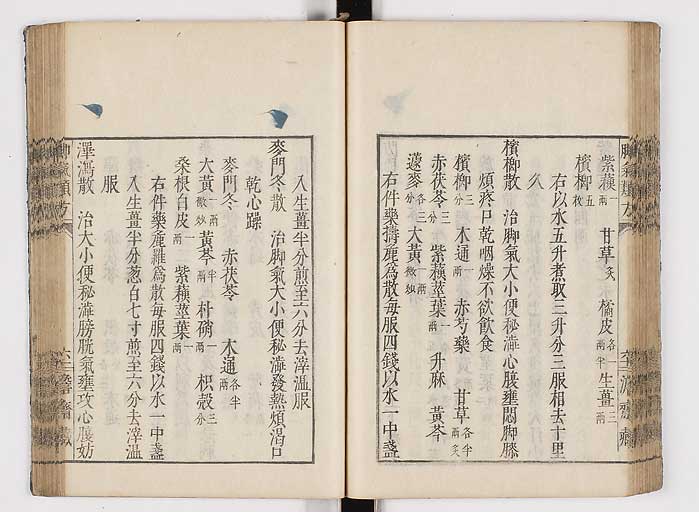 紫蘓一兩 甘草炙 橘皮各一兩半 生薑三兩
檳榔五枚
右以水五升煮取三升分三服相去十里
久
檳榔散 治脚氣大小便秘澁心腹壅悶脚膝
煩疼口乾咽燥不欲飲食
檳榔三分 木通一兩 赤芍藥 甘草各半兩炙
赤茯苓三分 紫蘓莖葉一兩 升麻 黃芩
蘧麥各三分 大黃二兩微炒
右件藥擣麄爲散每服四錢以水一中盞
入生薑半分煎至六分去滓溫服
麥門冬散 治脚氣大小便秘澁發熱煩渴口
乾心躁
麥門冬 赤茯苓 木通各半兩
大黃一兩微炒 黃芩半兩 朴硝一兩 枳殼三分
桑根白皮一兩 紫蘓莖葉一兩
右件藥麄羅爲散每服四錢以水一中盞
入生薑半分葱白七寸煎至六分去滓溫
服
澤瀉散 治大小便秘澁膀胱氣壅攻心腹妨
脚氣類方